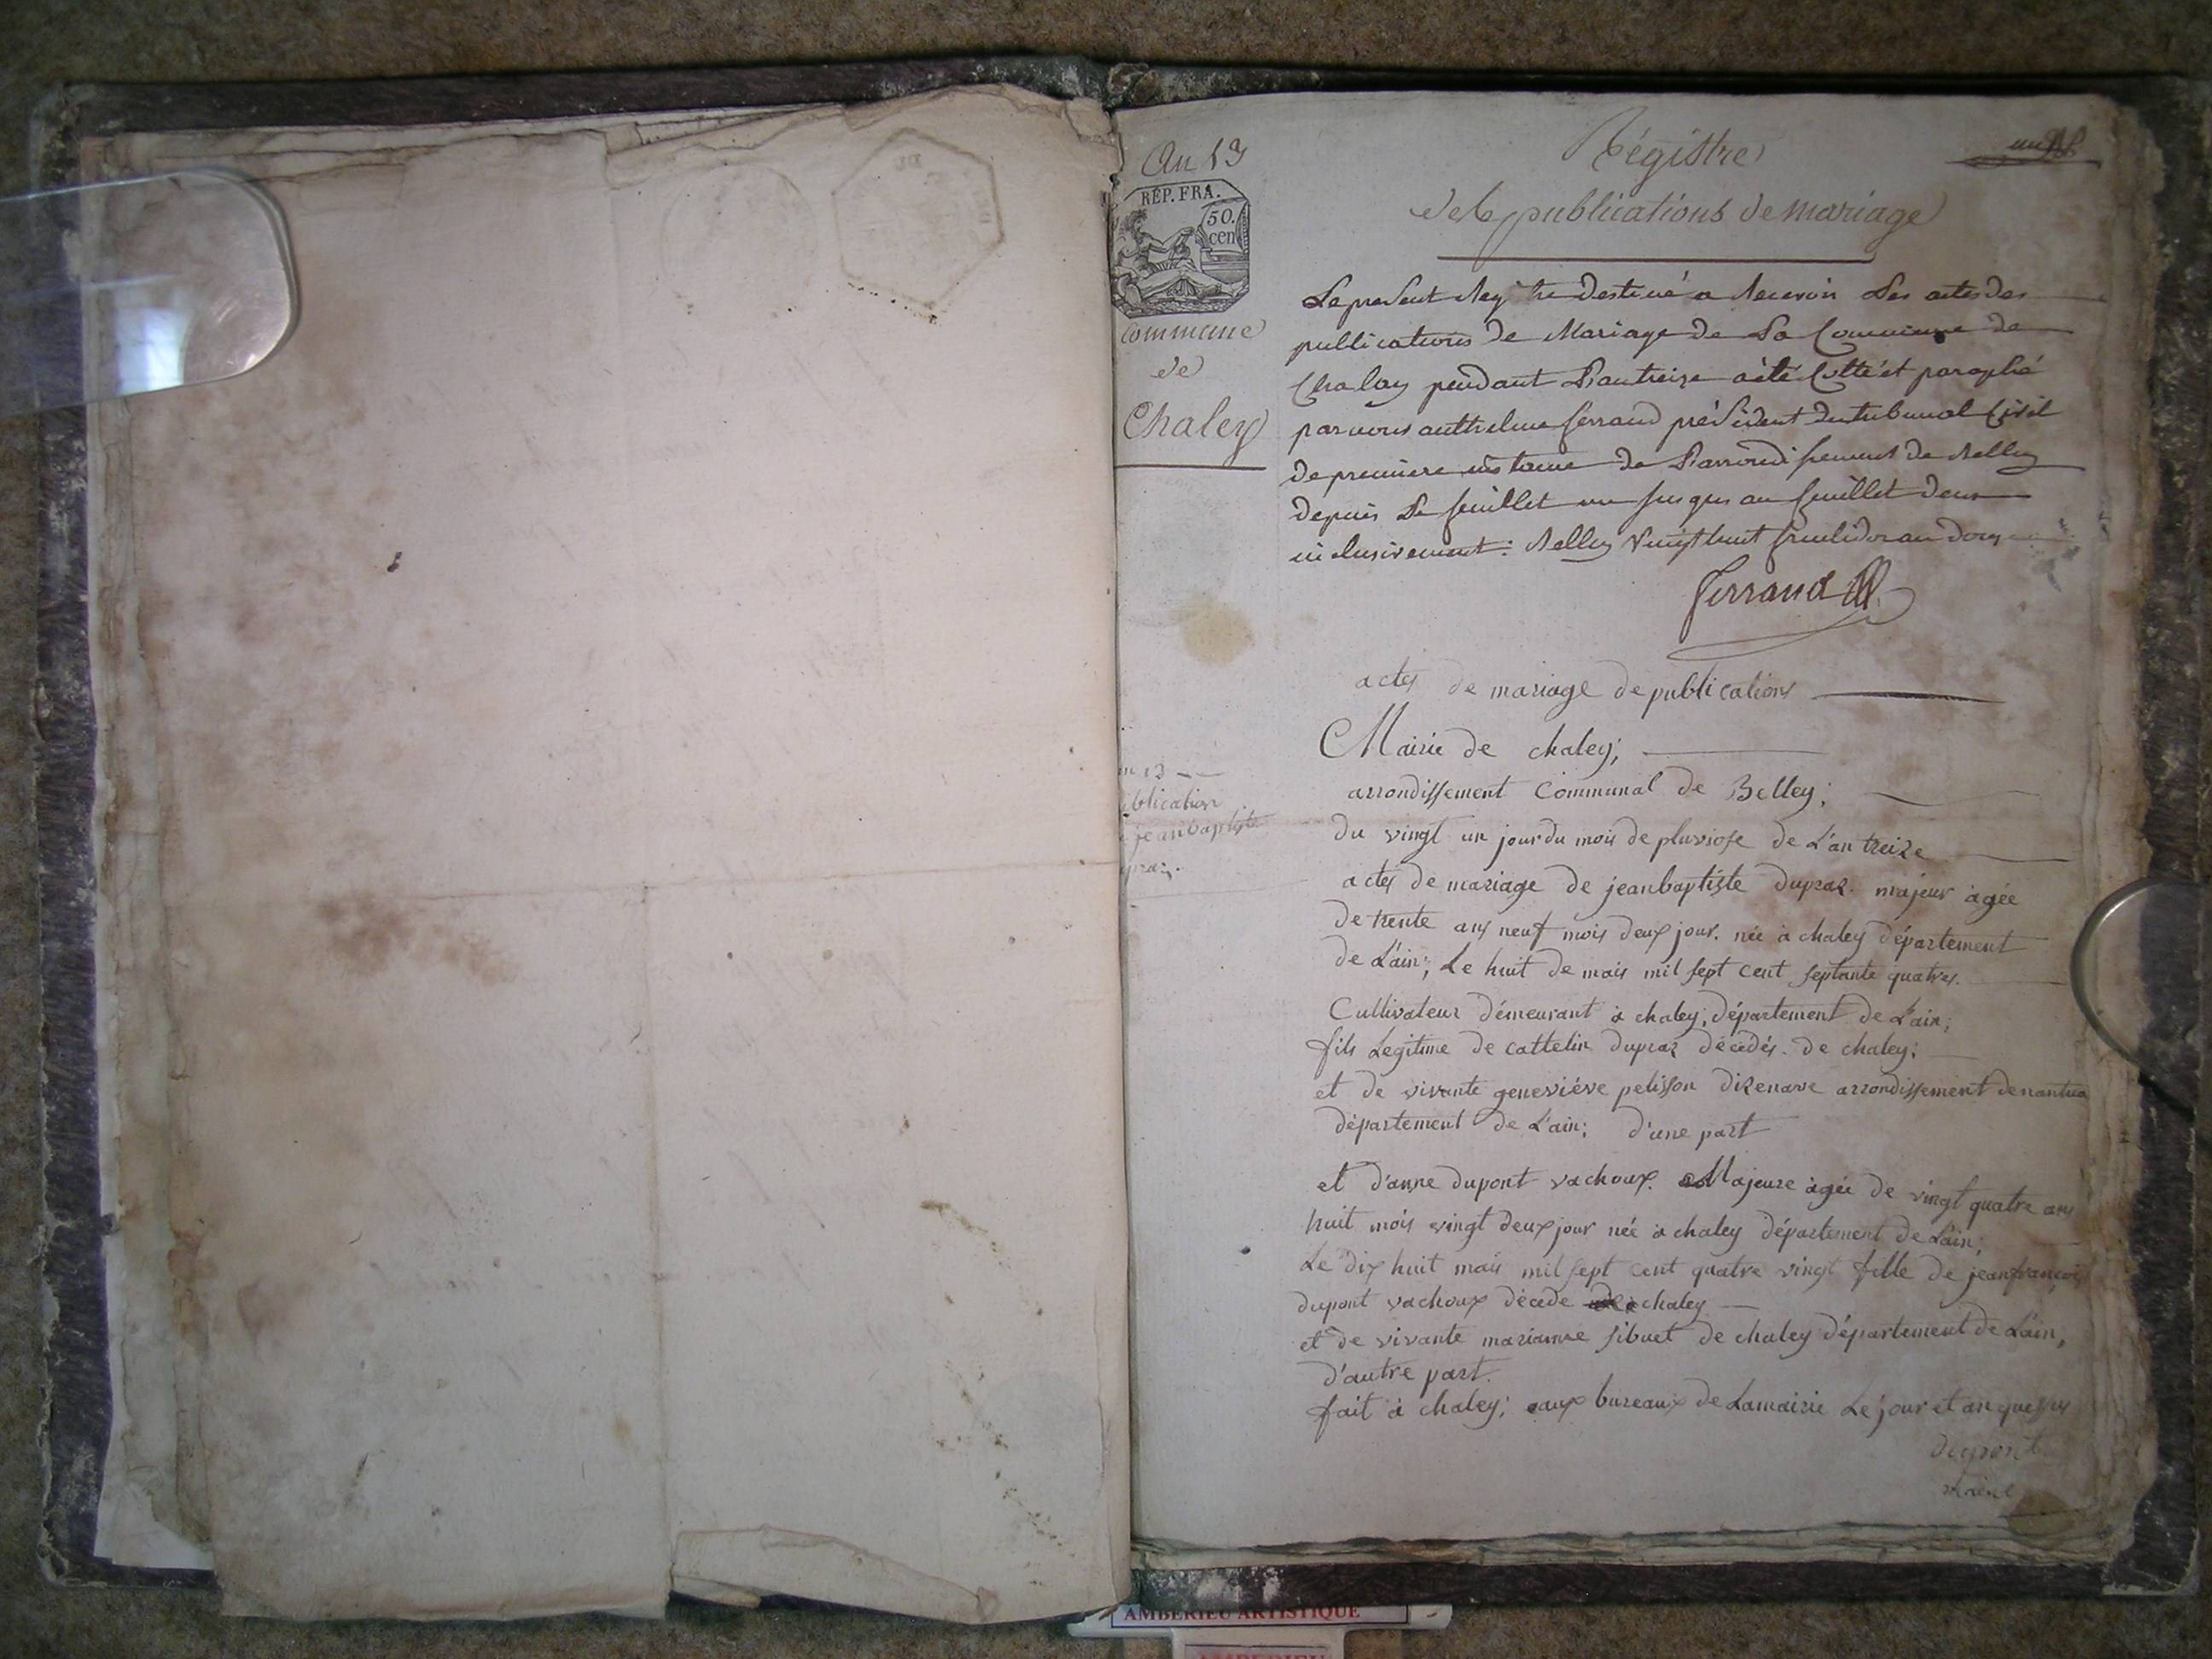 An 13
REP. FRA.
50.
cen
commune
de
Chaley
Régistre
des publications de mariage
Le present Registre destiné a Recevoir Les actes des
publications de Mariage de La Commune de
Chaley pendant L'an treize a été Cotté et paraphé
par nous anthelme ferrand président du tribunal Civil
de premiere instance de L'arrondissement de Belley
depuis Le feuillet un jusques au feuillet deux
inclusivement. Belley vingt huit fructidor an douze
ferrand
actes de mariage de publications
Mairie de chaley;
arrondissement Communal de Belley;
du vingt un jour du mois de pluviose de L'an treize
actes de mariage de jeanbaptiste dupraz. majeur agée
de trente ans neuf mois deux jour. née à chaley département
de L'ain; Le huit de mais mil sept cent septante quatres.
Cultivateur démeurant à chaley; département de L'ain;
fils Legitime de cattelin dupraz décédés. de chaley;
et de vivante geneviéve pelisson dizenave arrondissement de nantua
département de L'ain; d'une part
et d'anne dupont vachoux. Majeure agée de vingt quatre ans
huit mois vingt deux jour née à chaley département de L'ain;
Le dix huit mais mil sept cent quatre vingt fille de jeanfrançois
dupont vachoux décede à chaley
et de vivante marianne sibuet de chaley département de L'ain,
d'autre part.
fait à chaley; aux bureaux de Lamairie Le jour et an que sus
dupont
maire
an 13
publication
jeanbaptiste
praz.
AMBERIEU ARTISTIQUE
AMBERIEU